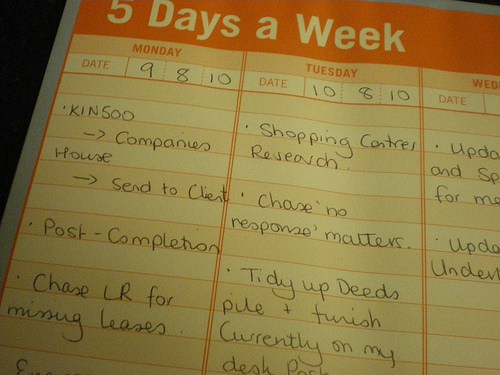 5 Days a Week
MONDAY
DATE 9 8 10
· KINSOO
→ Companies
House
→ Send to Client
· Post - Completion
· Chase LR for
missing leases.
TUESDAY
DATE 10 8 10
· Shopping Centres
Research.
· Chase 'no
response' matters.
· Tidy up Deeds
pile + finish
Currently on my
desk
WED
DATE
· Upda
and Sp
for me
· Upda
Under